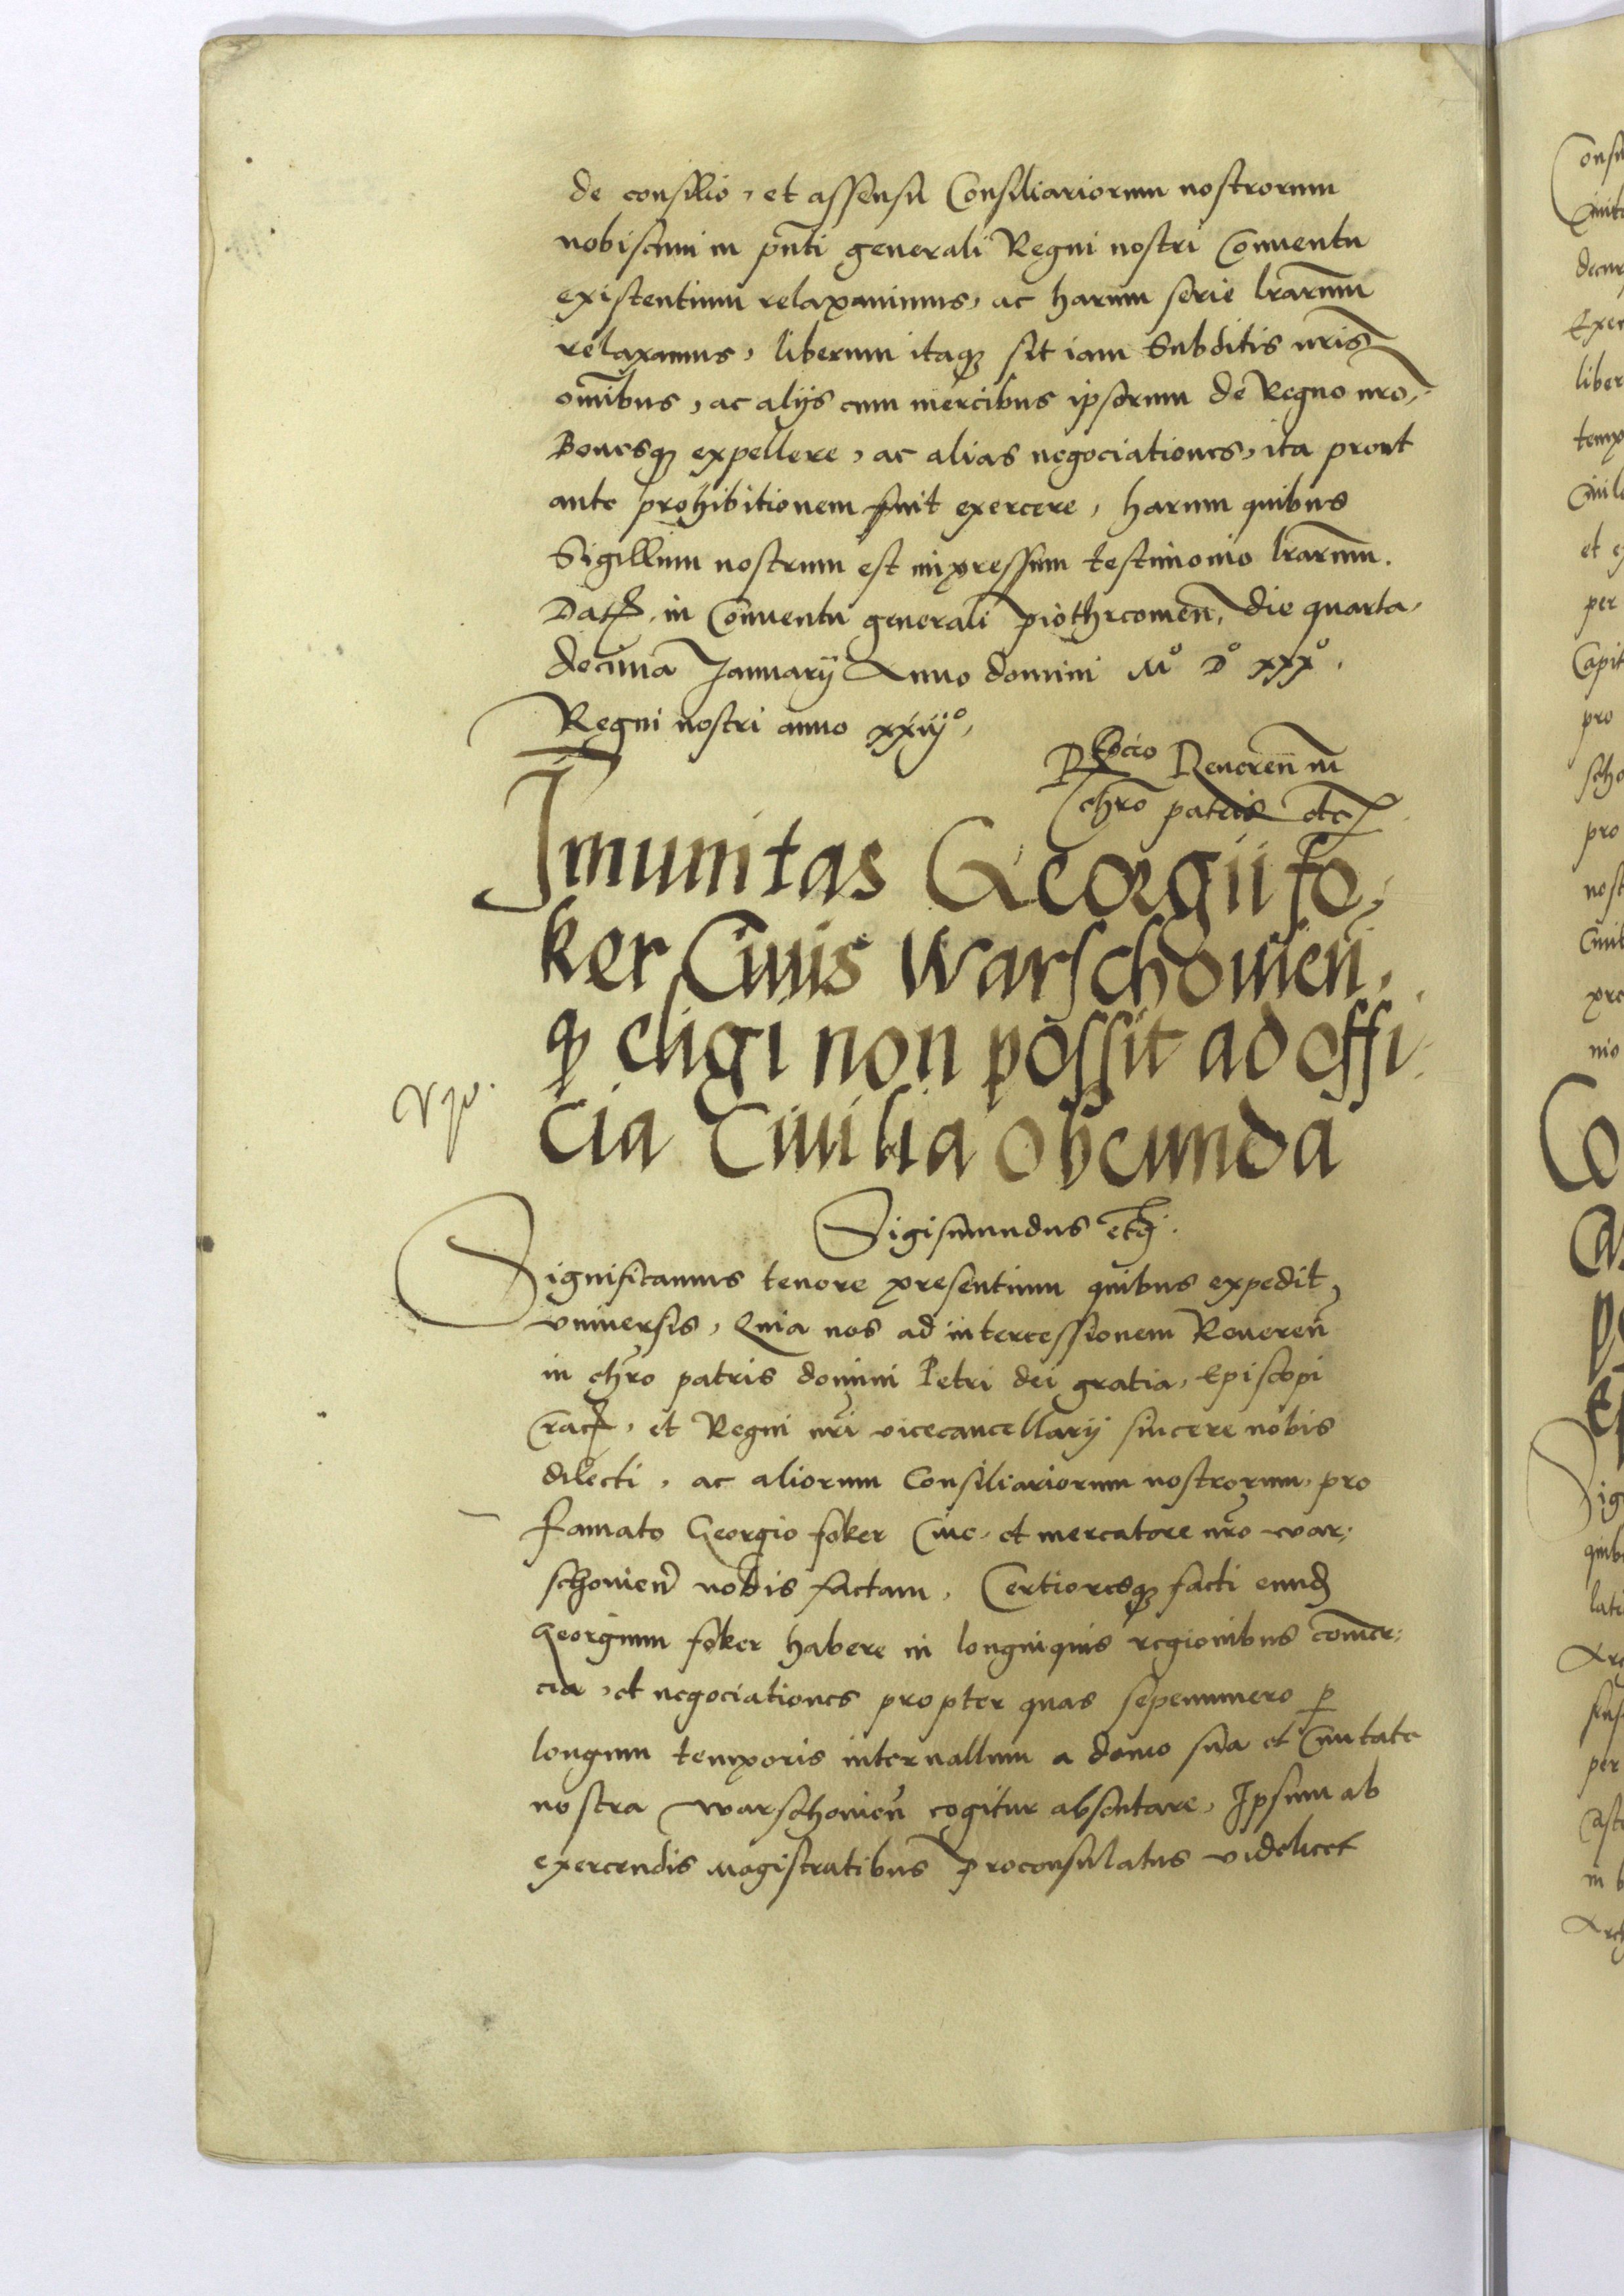 de consilio, et assensu Consiliariorum nostrorum
nobiscum in pñti generali Regni nostri Conuentu
existentium relaxauimus, ac harum serie lrarum̃
relaxamus, liberum itaqȝ sit iam Subditis nris̃
om̃ibus, ac alijs cum mercibus ipsorum de Regno nrõ,
Bouesqȝ expellere, ac alias negociationes, ita prout
ante prohibitionem fuit exercere, harum quibus
Sigillum nostrum est impressum testimonio lrarum̃.
Datȝ. in Conuentu generali piothrcomeñ, die quarta,
decima Januarij Anno domini Mº Dº xxxº.
Regni nostri anno xxiijº,
Reuereñ in
chrõ patris etcȝ
Imunitas Georgii fo,
ker Ciuis Warschouieñ.
qȝ eligi non possit ad offi
cia Ciuilia obeunda
Sigismundus etcȝ.
Significamus tenore presentium quibus expedit,
vniuersis, Quia nos ad intercessionem Reuereñ
in chrõ patris domini Petri dei gratia, Episcopi
Cracȝ, et Regni nrĩ vicecancellarij sincere nobis
dilecti, ac aliorum Consiliariorum nostrorum, pro
famato Georgio foker Ciue, et mercatore nrõ war,
schouieñ nobis factam, Certioresqȝ facti eundȝ
Georgium foker habere in longinquis regionibus com̃er,
cia, et negociationes propter quas sepenumero p̱
longum temporis interuallum a domo sua et Ciuitate
nostra warschouieñ cogitur absentare, Ipsum ab
exercendis magistratibus proconsulatus videlicet
Consu
Ciuita
decur
Exer
liber
temp
Ciuile
et e
per
Capit
pro
scho
pro
nost
Ciuit
pre
nio
Co
Sig
quib
lati
per
in b
Arch